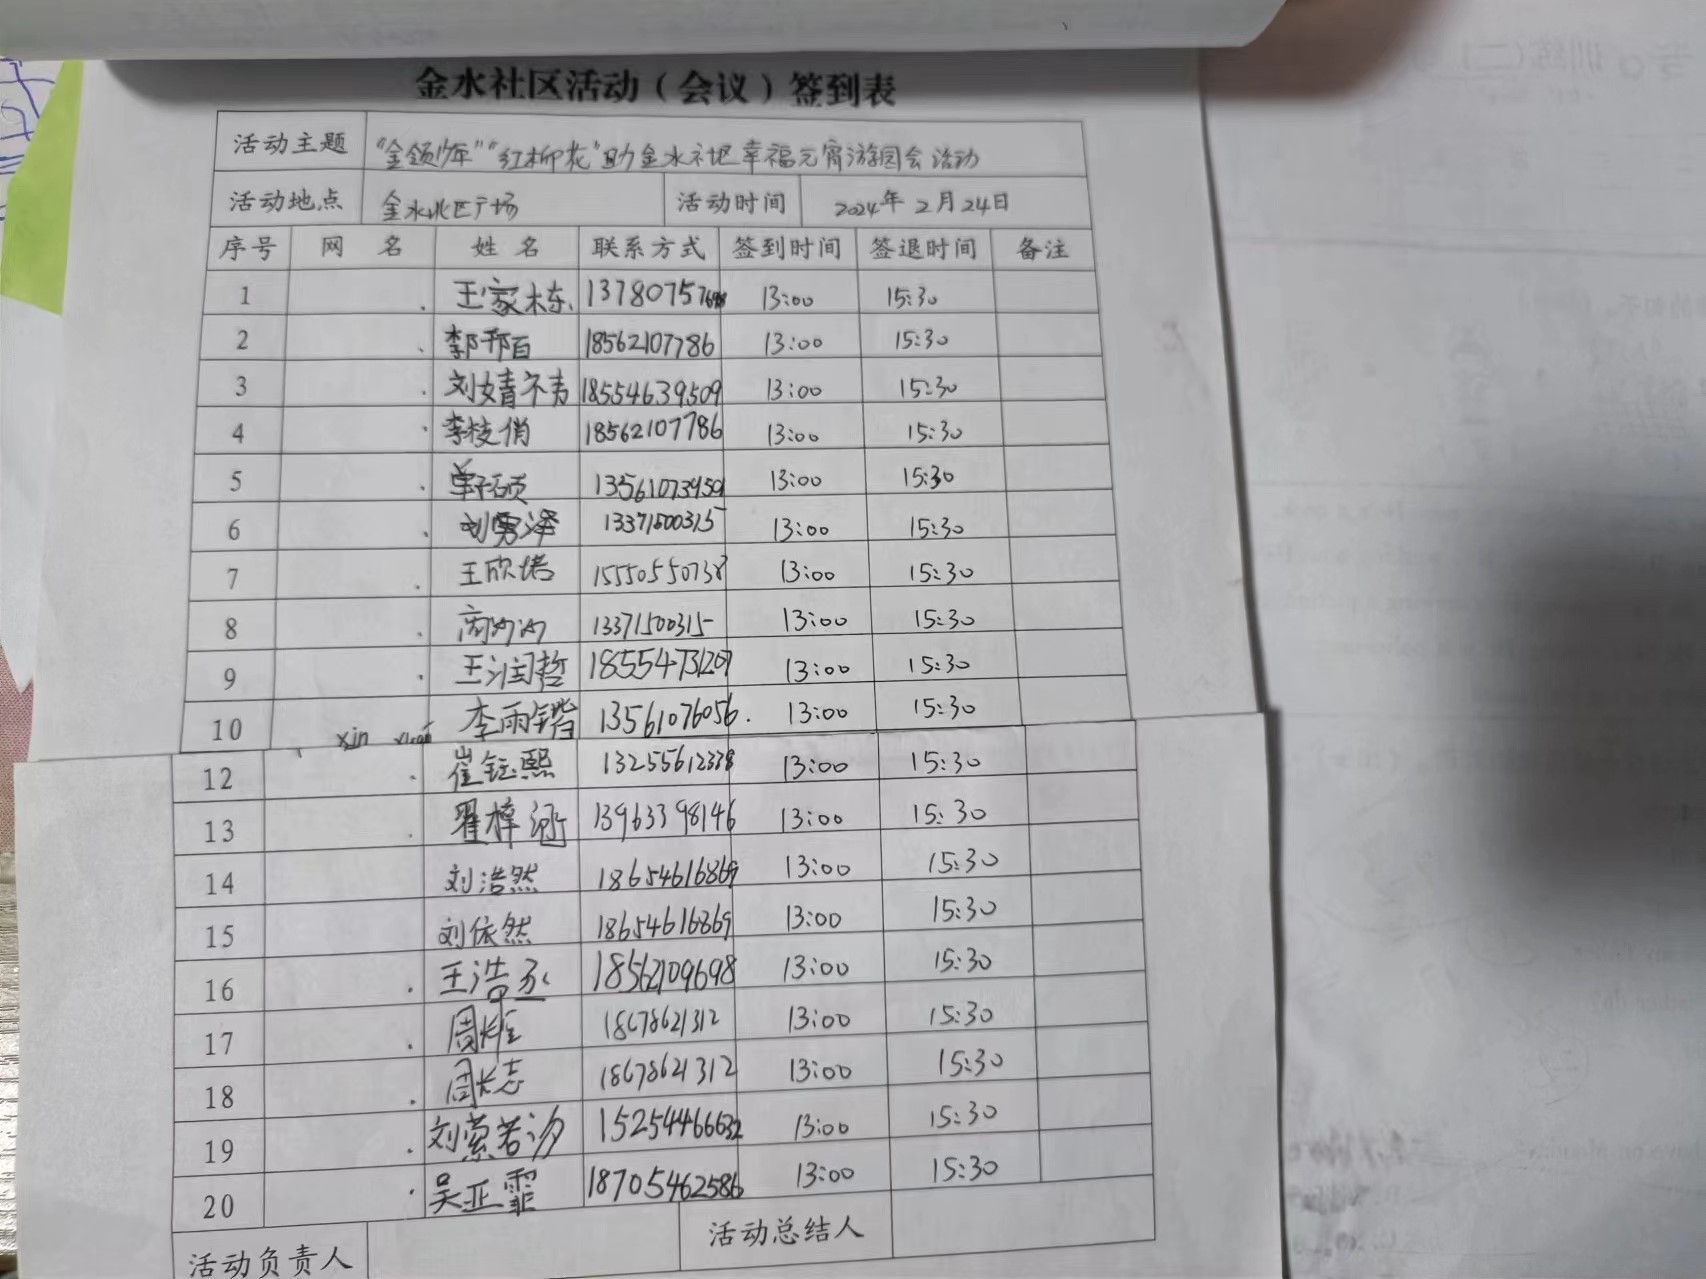 金水社区活动（会议）签到表
活动主题 "金领少年""红柳花"助金水社区幸福元宵游园会活动
活动地点 金水社区广场 活动时间 2024年2月24日
序号 网 名 姓 名 联系方式 签到时间 签退时间 备注
1 王家栋 13780757 13:00 15:30
2 18562107786 13:00 15:30
3 刘婧 18554639509 13:00 15:30
4 李枝俏 18562107786 13:00 15:30
5 单硕 13561073950 13:00 15:30
6 刘 泽 13371500315 13:00 15:30
7 王欣 15550550738 13:00 15:30
8 13371500315 13:00 15:30
9 王润哲 18554731207 13:00 15:30
10 xin 李雨锴 13561076056 13:00 15:30
12 崔钰熙 13255612338 13:00 15:30
13 翟梓涵 13963398146 13:00 15:30
14 刘浩然 18654616869 13:00 15:30
15 刘依然 18654616869 13:00 15:30
16 王浩丞 18562109698 13:00 15:30
17 周 18678621312 13:00 15:30
18 周长志 18678621312 13:00 15:30
19 刘萦若汐 15254466632 13:00 15:30
20 吴亚霏 18705462586 13:00 15:30
活动负责人 活动总结人